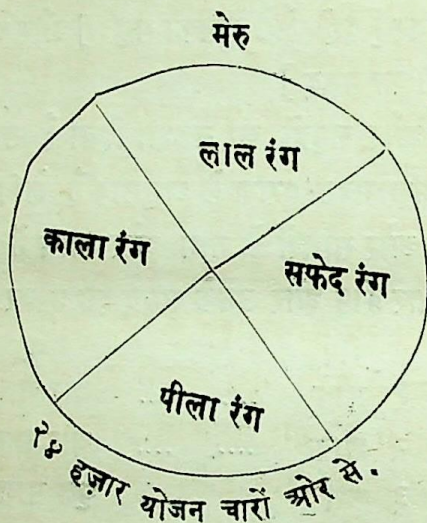 मेरु
लाल रंग
काला रंग
सफेद रंग
पीला रंग
२४ हज़ार योजन चारों ओर से.